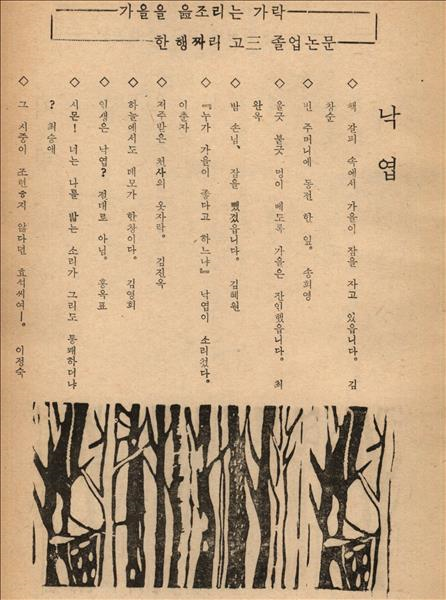 가을을 읊조리는 가락
한 행짜리 고三 졸업논문
낙엽
◇ 책 갈피 속에서 가을이 잠을 자고 있읍니다. 김
창순
◇ 빈 주머니에 동전 한 잎. 송희영
◇ 울긋 불긋 멍이 베도록 가을은 잔인했읍니다. 최
완옥
◇ 밤 손님, 잠을 뺐겼읍니다. 김혜원
◇ 『누가 가을이 좋다고 하느냐』 낙엽이 소리쳤다.
이춘자
◇ 저주받은 천사의 옷자락. 김진옥
◇ 하늘에서도 데모가 한창이다. 김영회
◇ 인생은 낙엽? 절대로 아님. 홍옥표
◇ 시몬! 너는 나를 밟는 소리가 그리도 통쾌하더냐
? 최승애
◇ 그 시중이 조련승지 않다던 효석씨여ㅡ. 이정숙